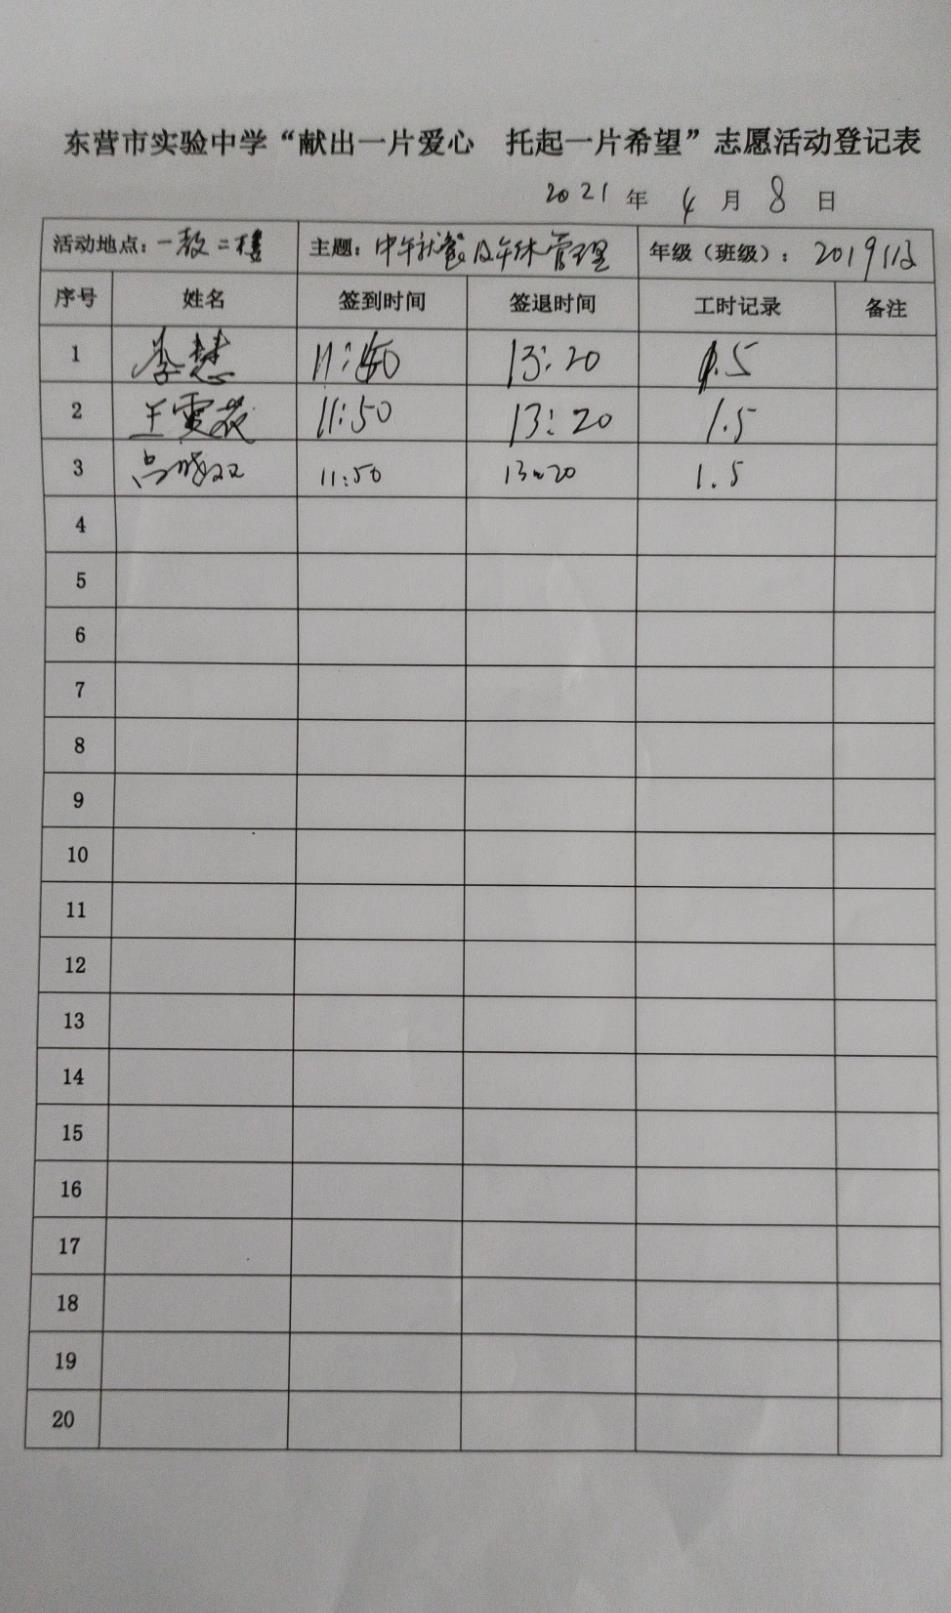 东营市实验中学“献出一片爱心 托起一片希望”志愿活动登记表
2021年4月8日
活动地点：一教二楼 主题：中午就餐及午休管理 年级（班级）：2019
序号 姓名 签到时间 签退时间 工时记录 备注
1 李慧 11:50 13:20 1.5
2 王雯 11:50 13:20 1.5
3 11:50 13:20 1.5
4
5
6
7
8
9
10
11
12
13
14
15
16
17
18
19
20